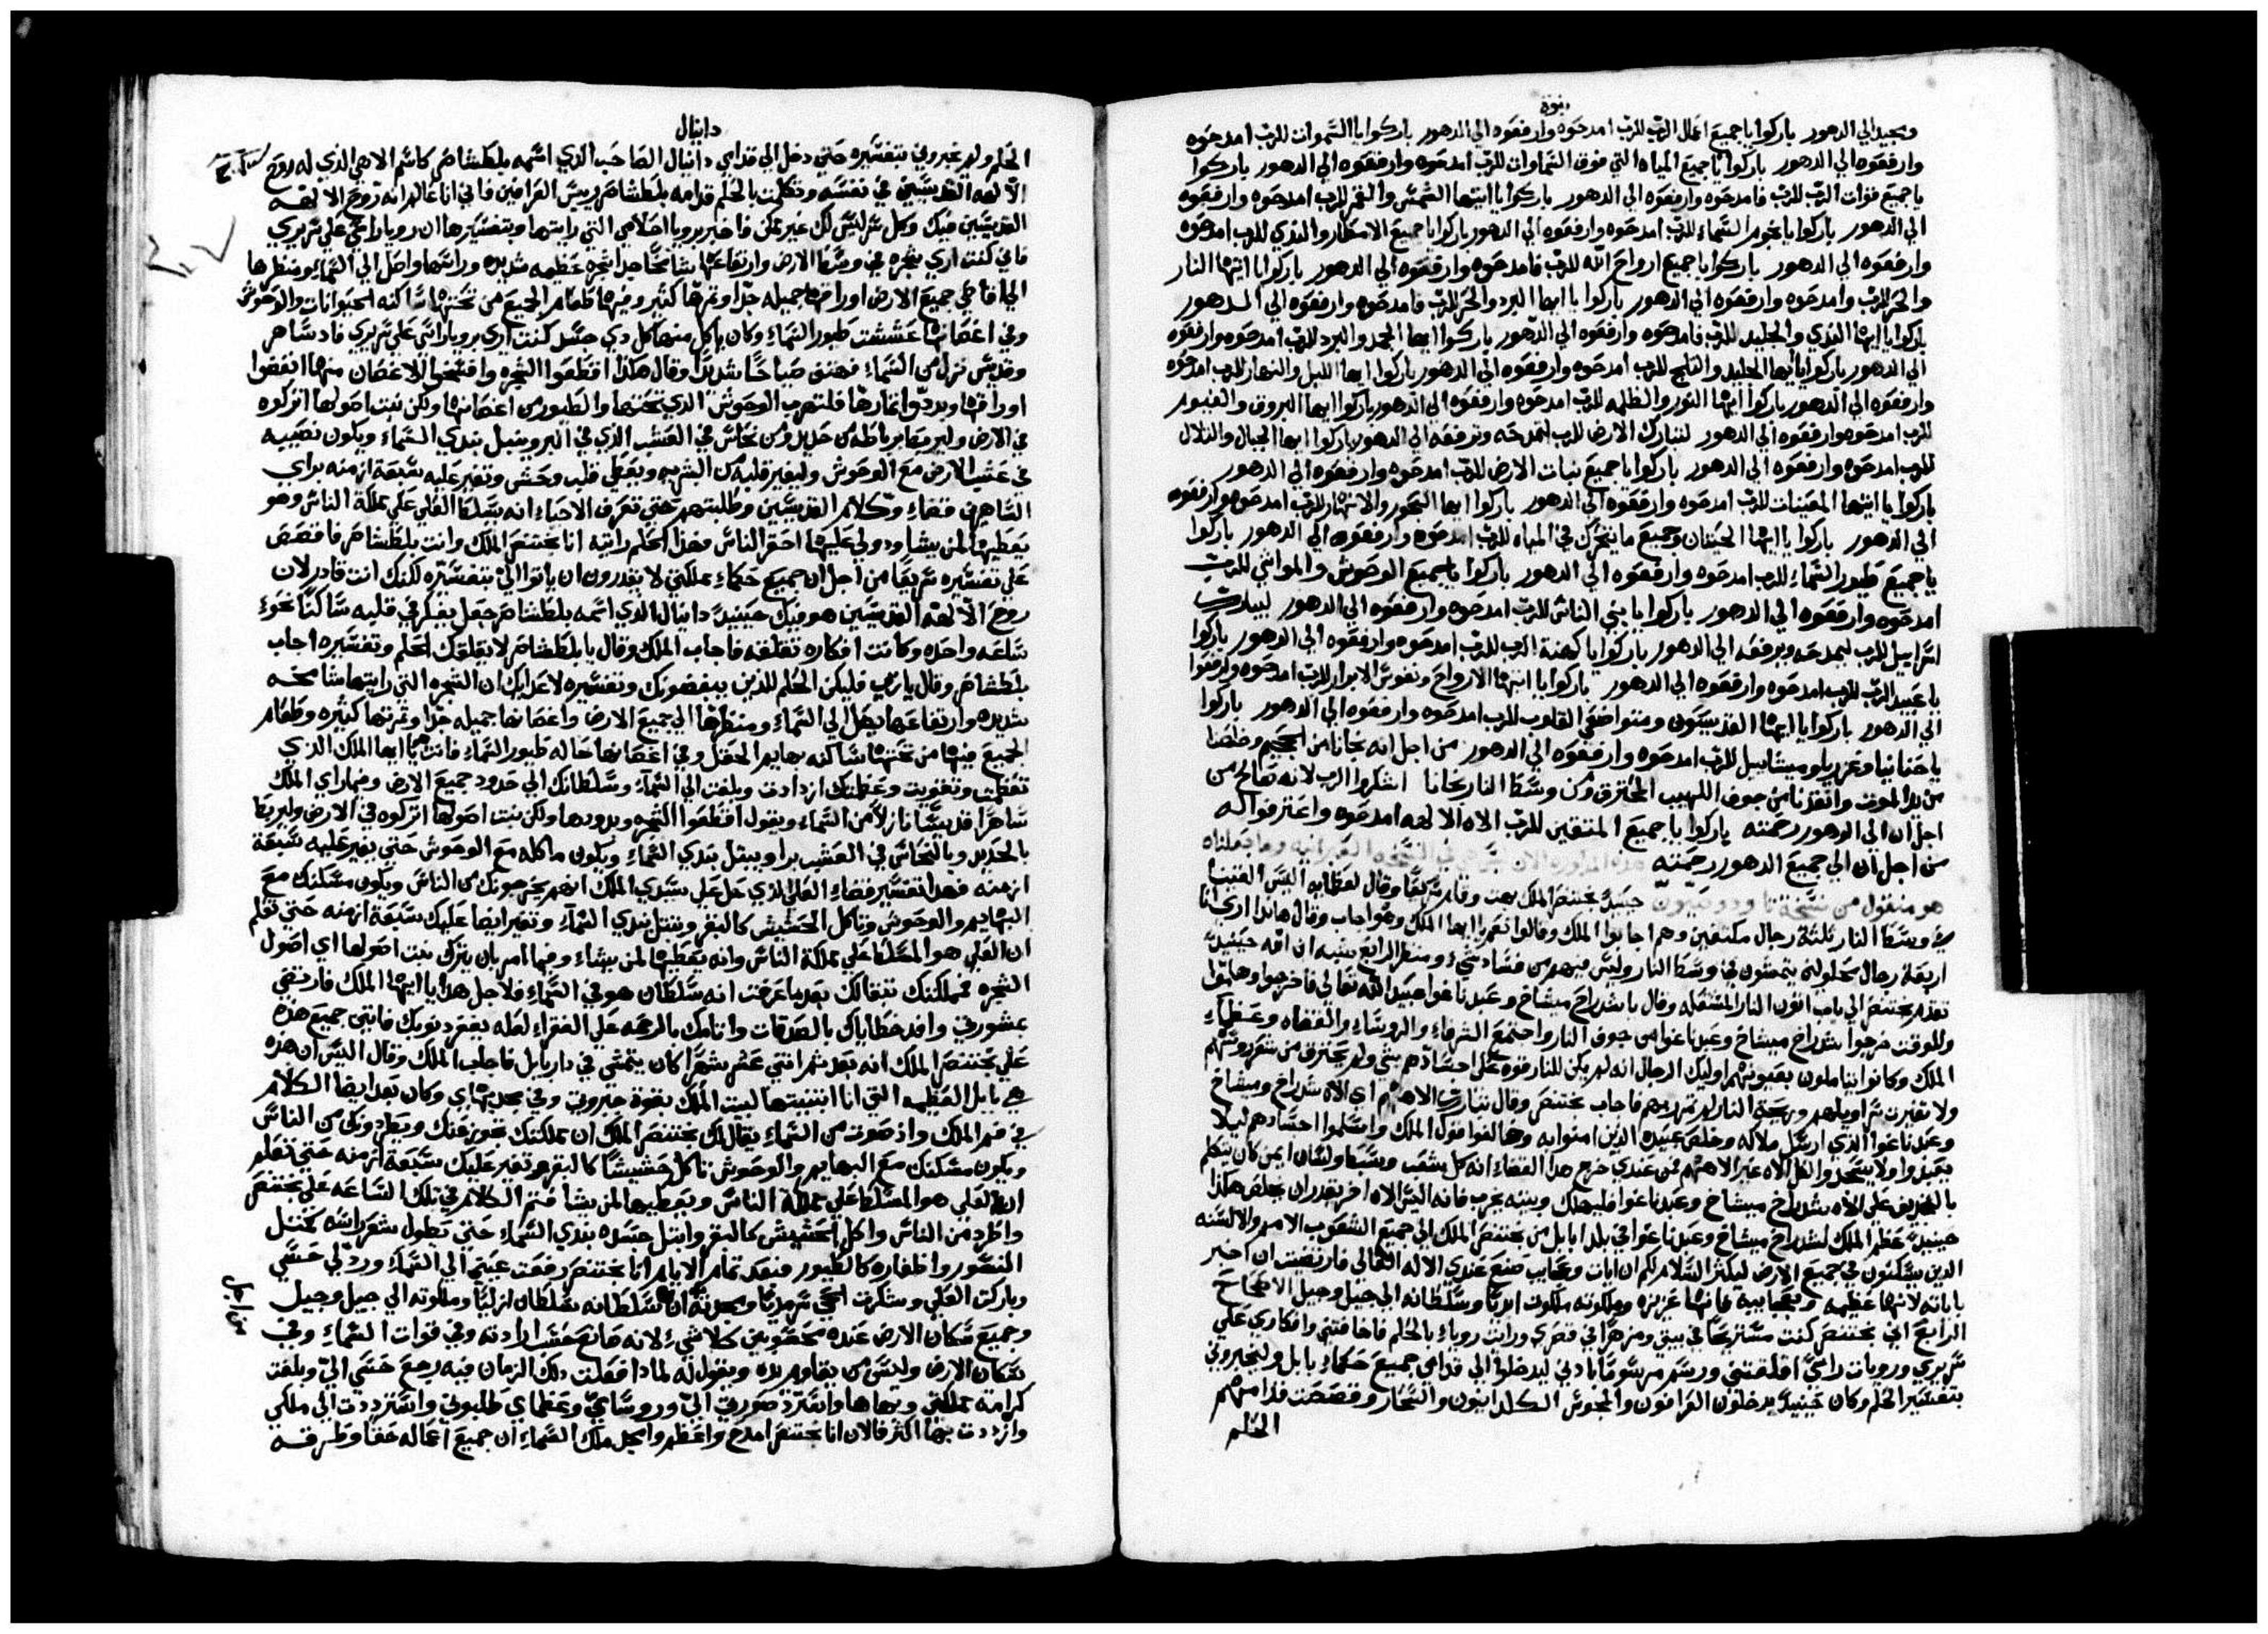 نبوة
ومجيد الي الدهور باركوا يا جميع اعمال الرب للرب امدحوه وارفعوه الي الدهور باركوا يا السموات للرب امدحوه
وارفعوه الي الدهور باركوا يا جميع المياه التي فوق السماوات للرب امدحوه وارفعوه الي الدهور باركوا
يا جميع قوات الرب للرب فامدحوه وارفعوه الي الدهور باركوا يا ايتها الشمس والقمر للرب امدحوه وارفعوه
الي الدهور باركوا يا نجوم السماء للرب امدحوه وارفعوه الي الدهور باركوا يا جميع الامطار والندي للرب امدحوه
وارفعوه الي الدهور باركوا يا جميع ارواح الله للرب فامدحوه وارفعوه الي الدهور باركوا يا ايتها النار
والحر للرب وامدحوه وارفعوه الي الدهور باركوا يا ايها البرد والحر للرب فامدحوه وارفعوه الي الدهور
باركوا يا ايها الندي والجليد للرب فامدحوه وارفعوه الي الدهور باركوا ايها الجمد والبرد للرب امدحوه وارفعوه
الي الدهور باركوا يا ايها الجليد والثلج للرب امدحوه وارفعوه الي الدهور باركوا ايها الليل والنهار للرب امدحوه
وارفعوه الي الدهور باركوا ايها النور والظلمه للرب امدحوه وارفعوه الي الدهور باركوا ايها البروق والغيوم
للرب امدحوه وارفعوه الي الدهور لتبارك الارض للرب لتمدحه وترفعه الي الدهور باركوا ايها الجبال والتلال
للرب امدحوه وارفعوه الي الدهور باركوا يا جميع نبات الارض للرب امدحوه وارفعوه الي الدهور
باركوا يا ايتها المعينات للرب امدحوه وارفعوه الي الدهور باركوا ايها البحور والانهار للرب امدحوه وارفعوه
الي الدهور باركوا يا ايها الحيتان وجميع ما يتحرك في المياه للرب امدحوه وارفعوه الي الدهور باركوا
يا جميع طيور السماء للرب امدحوه وارفعوه الي الدهور باركوا يا جميع الوحوش والمواشي للرب
امدحوه وارفعوه الي الدهور باركوا يا بني الناس للرب امدحوه وارفعوه الي الدهور ليبارك
اسراييل للرب ليمدحه ويرفعه الي الدهور باركوا يا كهنة الرب للرب امدحوه وارفعوه الي الدهور باركوا
يا عبيد الرب للرب امدحوه وارفعوه الي الدهور باركوا يا ايتها الارواح ونفوس الابرار للرب امدحوه وارفعوا
الي الدهور باركوا يا ايها القديسون ومتواضعي القلوب للرب امدحوه وارفعوه الي الدهور باركوا
يا حنانيا وعزريا وميشاييل للرب امدحوه وارفعوه الي الدهور من اجل انه نجانا من الجحيم وخلصنا
من يد الموت وانقذنا من جوف اللهيب المحترق ومن وسط النار نجانا اشكروا الرب لانه صالح من
اجل ان الي الدهور رحمته باركوا يا جميع المتقين للرب الاه الالهه امدحوه واعترفوا له
من اجل ان الي جميع الدهور رحمته هذه المذكوره الان ليس هي في النسخه العبرانيه وما جعلناه
هو منقول من نسخة تاودوتيون حينيذ بختنصر الملك بهت وقام سريعا وقال لعظمايه اليس القينا
في وسط النار ثلثة رجال مكتفين وهم اجابوا الملك وقالوا نعم ايها الملك وهو اجاب وقال هانذا اري انا
اربعة رجال محلولين يتمشون في وسط النار وليس فيهم من فساد شيء ومنظر الرابع يشبه ابن الله حينيذ
تقدم بختنصر الي باب اتون النار المشتعله وقال يا شدراخ ميشاخ وعبدناغوا عبيد الله تعالي فاخرجوا وهلموا
وللوقت خرجوا شدراخ ميشاخ وعبدناغوا من جوف النار واجتمع الشرفاء والروساء والقضاه وعظماء
الملك وكانوا يتاملون بعيونهم اوليك الرجال انه لم يكن للنار قوه علي اجسادهم شي ولم يحترق من شعر روسهم
ولا تغيرت سراويلهم وريحة النار لم تمر بهم فاجاب بختنصر وقال تبارك الاههم اي الاه شدراخ وميشاخ
وعبدناغوا الذي ارسل ملاكه وخلص عبيده الذين امنوا به وخالفوا قول الملك واسلموا اجسادهم ليلا
يعبدوا ولا يسجدوا لكل الاه غير الاههم فمن عندي خرج هذا القضاء انه كل شعب وسبط ولسان ايمن كان يتكلم
بالتجديف علي الاه شدراخ ميشاخ وعبدناغوا فليهلك وبيته يخرب فانه ليس الاه اخر يقدر ان يخلص هكذا
حينيذ عظم الملك لشدراخ ميشاخ وعبدناغوا في بلد بابل من بختنصر الملك الي جميع الشعوب الامم والالسنه
الذين يسكنون في جميع الارض ليكثر السلام لكم ان ايات وعجايب صنع عندي الاله العالي فارتضيت ان اخبر
باياته لانها عظيمه وبعجايبه فانها عزيزه وملكوته ملكوت ابديا وسلطانه الي جيل وجيل الاصحاح
الرابع اني بختنصر كنت مستريحا في بيتي ومزهرا في قصري ورايت روياء بالحلم فاخافتني وافكاري علي
سريري ورويات راسي اقلقتني ورسم مرسوما بادني ليدخلوا الي قدامي جميع حكماء بابل وليخبروني
بتفسير الحلم وكان حينيذ يدخلون العرافون والمجوس الكلدانيون والسحار وقصصت قدامهم
الحلم
دانيال
الحلم ولم يخبروني بتفسيره حتي دخل الي قدامي دانيال الصاحب الذي اسمه بلطشاصر كاسم الاهي الذي له روح
الالهه القديسين في نفسه وتكلمت بالحلم قدامه بلطشاصر رييس العرافين فاني انا عالم انه روح الالهه
القديسين فيك وكل سر ليس لك غير ممكن فاخبر برويا احلامي التي رايتها وبتفسيرها ان رويا راسي علي سريري
فاني كنت اري شجره في وسط الارض وارتفاعها شامخا جدا شجره عظيمه شديده ورايتها واصل الي السماء ومنظرها
الي اقاصي جميع الارض اوراقها جميله جدا وثمرها كثير وفيها طعام الجميع من تحتها ساكنه الحيوانات والوحوش
وفي اغصانها عششت طيور السماء وكان ياكل منها كل ذي جسد كنت اري برويا راسي علي سريري فاذ ساهر
وقديس نزل من السماء فهتف صياحا شديدا وقال هكذا اقطعوا الشجره واقتحوا الاغصان منها انفضوا
اوراقها وبددوا اثمارها فلتهرب الوحوش الذي تحتها والطيور من اغصانها ولكن نبت اصولها اتركوه
في الارض وليربط برباطه من حديد ومن نحاس في العشب الذي في البر ويتبل بندي السماء ويكون نصيبه
في عشب الارض مع الوحوش وليغير قلبه من البشريه ويعطي قلب وحش وتغير عليه سبعة ازمنه براي
الساهرين قضاء وكلام القديسين وطلبتهم حتي تعرف الاحياء انه يسلط العلي علي مملكة الناس وهو
يعطيها لمن يشا ويولي عليها احقر الناس فهذا الحلم رايته انا بختنصر الملك وانت بلطشاصر فاقصص
علي تفسيره سريعا من اجل ان جميع حكماء مملكتي لا يقدرون ان ياتوا الي بتفسيره لكنك انت قادر لان
روح الالهه القديسين هو فيك حينيذ دانيال الذي اسمه بلطشاصر جعل يفكر في قلبه ساكتا نحوء
ساعه واحده وكانت افكاره تقلقه فاجاب الملك وقال يا بلطشاصر لا يقلقك الحلم وتفسيره اجاب
بلطشاصر وقال يا رب فليكن الحلم للذين يبغضونك وتفسيره لاعدايك ان الشجره التي رايتها شامخه
شديده وارتفاعها يصل الي السماء ومنظرها الي جميع الارض واغصانها جميله جدا وثمرتها كثيره وطعام
الجميع فيها من تحتها ساكنه بهايم الحقل وفي اغصانها حاله طيور السماء فانت هو يا ايها الملك الذي
تعظمت وتقويت وعظمتك ازدادت وبلغت الي السماء وسلطانك الي حدود جميع الارض وفيما راي الملك
ساهرا قديسا نازلا من السماء ويقول اقطعوا الشجره وبددوها ولكن نبت اصولها اتركوه في الارض وليربط
بالحديد وبالنحاس في العشب برا ويبتل بندي السماء ويكون ماكله مع الوحوش حتي يغير عليه سبعة
ازمنه فهذا تفسير قضاء العلي الذي حل علي سيدي الملك انهم يخرجونك من الناس ويكون مسكنك مع
البهايم والوحوش وتاكل الحشيش كالبقر وتبتل بندي السماء وتغير ايضا عليك سبعة ازمنه حتي تعلم
ان العلي هو المسلط علي مملكة الناس وانه يعطيها لمن يشاء وفيما امر بان يترك نبت اصولها اي اصول
الشجره فمملكتك تبقا لك بعد ما عرفت انه سلطان هو في السماء فلاجل هذا يا ايها الملك فارتضي
بمشورتي وافد خطاياك بالصدقات واثامك بالرحمه علي الفقراء لعله يغفر ذنوبك فاتي جميع هذه
علي بختنصر الملك انه بعد ثمر اثني عشر شهرا كان يتمشي في دار بابل فاجاب الملك وقال اليس ان هذه
هي بابل العظيمه التي انا ابتنيتها لبيت الملك بقوة جبروتي وفي مجد بهاي وكان بعد ايضا الكلام
في فم الملك واذ صوت من السماء يقال لك بختنصر الملك ان مملكتك تجوز عنك ويطردونك من الناس
ويكون مسكنك مع البهايم والوحوش تاكل حشيشا كالبقر وتغير عليك سبعة ازمنه حتي تعلم
ان العلي هو المسلط علي مملكة الناس ويعطيها لمن يشا فتم الكلام في تلك الساعه علي بختنصر
واطرد من الناس واكل الحشيش كالبقر وابتل جسده بندي السماء حتي تطول شعر راسه كمثل
النسور واظفاره كالطيور فبعد تمام الايام انا بختنصر رفعت عيني الي السماء ورد لي حسي
وباركت العلي وشكرت الحي سرمديا ومجدته ان سلطانه سلطان ازليا وملكوته الي جيل وجيل
وجميع سكان الارض عنده محسوبين كلا شيء لانه صانع حسب ارادته وفي قوات السماء وفي
سكان الارض وليس من يقاوم يده ويقول له لماذا فعلت ذلك الزمان فيه رجع حسي الي وبلغت
كرامة مملكتي وبهاها واسترد صورتي الي وروساي وعظماي طلبوني واسترددت الي ملكي
وازددت بها اكثر فالان انا بختنصر امدح واعظم وامجل ملك السماء ان جميع اعماله حقا وطرقه
من اجل